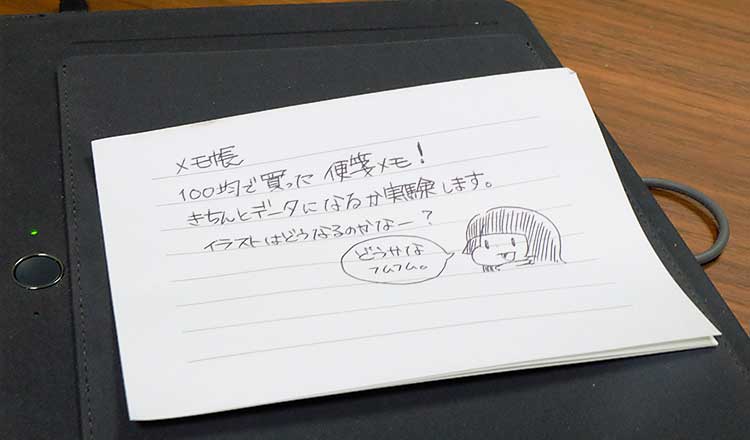 メモ帳
100均で買った 便箋メモ!
きちんとデータになるか実験します。
イラストはどうなるのかなー?
どうかな
フムフム。